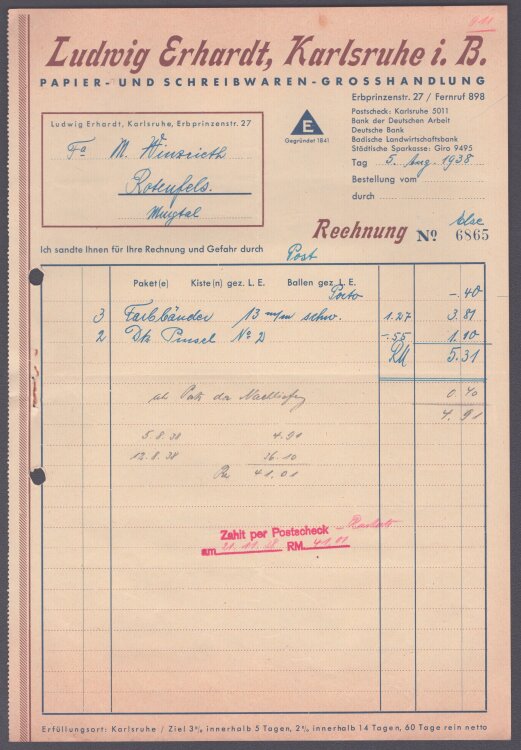 Ludwig Erhardt, Karlsruhe i. B.
PAPIER- UND SCHREIBWAREN-GROSSHANDLUNG
Erbprinzenstr. 27 / Fernruf 898
Postscheck: Karlsruhe 5011
Bank der Deutschen Arbeit
Deutsche Bank
Badische Landwirtschaftsbank
Städtische Sparkasse: Giro 9495
E
Gegründet 1841
Ludwig Erhardt, Karlsruhe, Erbprinzenstr. 27
Fa M. Winzrieth
Rotenfels.
Murgtal
Tag 5. Aug. 1938
Bestellung vom
durch
Rechnung No 6865
Ich sandte Ihnen für Ihre Rechnung und Gefahr durch Post
Paket(e) Kiste(n) gez. L. E. Ballen gez. L. E.
Porto -.40
3 Farbbänder 13 m/m schw. 1.27 3.81
2 Dtz Pinsel No 2 -.55 1.10
RM 5.31
0.40
4.91
5.8.38 4.91
12.8.38 36.10
41.01
Zahlt per Postscheck
am 21.11.38 RM. 41.01
Erfüllungsort: Karlsruhe / Ziel 3%, innerhalb 5 Tagen, 2% innerhalb 14 Tagen, 60 Tage rein netto